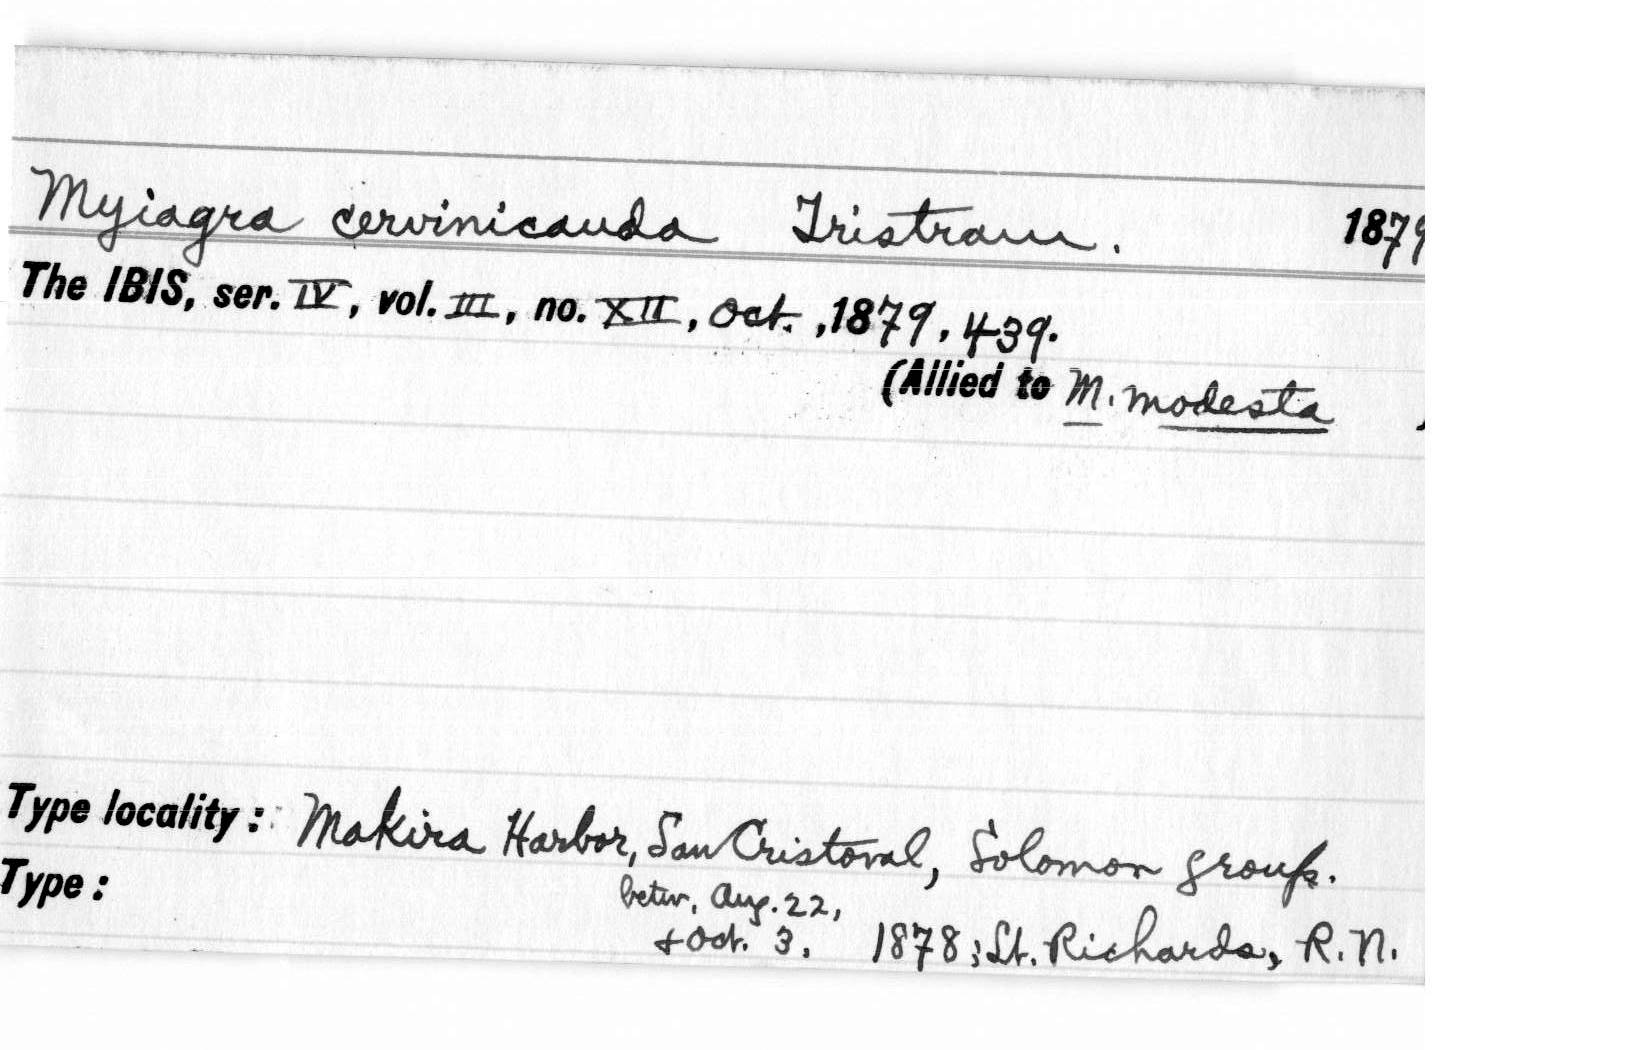 Myiagra cervinicauda Tristram. 1879
The IBIS, ser. IV, vol. III, no. XII, Oct. , 1879, 439.
(Allied to M. modesta )
Type locality: Makira Harbor, San Cristoval, Solomon group.
Type:
betw. Aug. 22,
& Oct. 3, 1878; Lt. Richards, R.N.